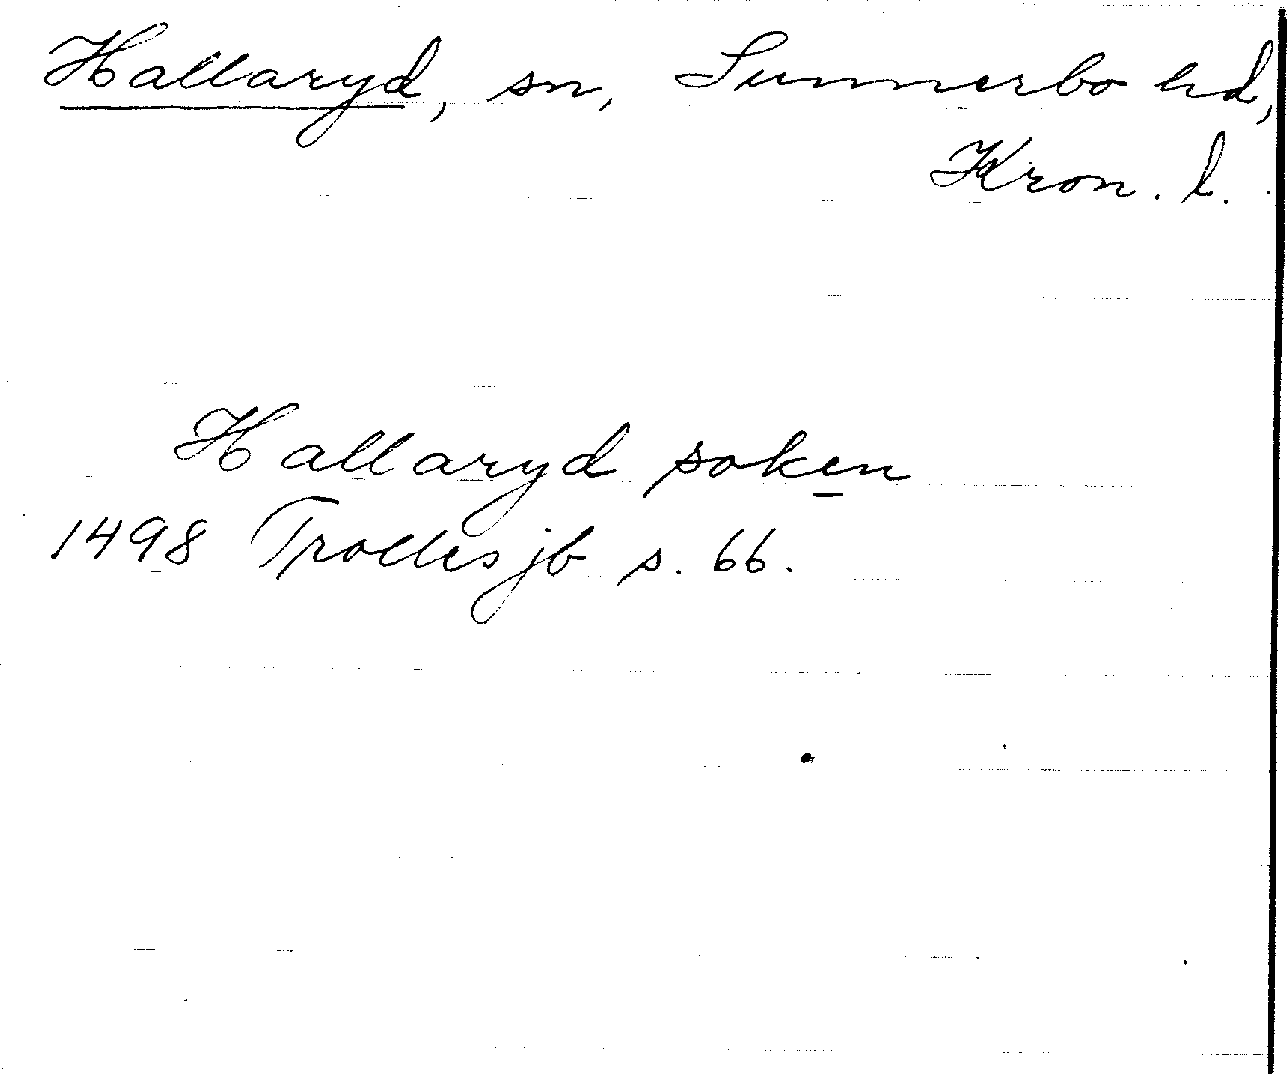 Hallaryd, sn, Sunnerbo hd,
Kron. l.
Hallaryd soken
1498 Trolles jb s. 66.